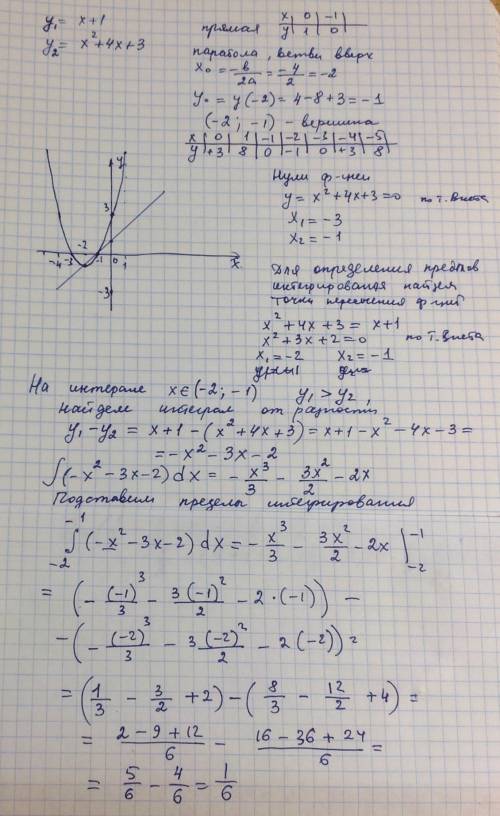 y₁ = x+1
y₂ = x²+4x+3
прямая x | 0 | -1
y | 1 | 0
парабола, ветви вверх
x₀ = -в/2а = -4/2 = -2
y₀ = y(-2) = 4-8+3 = -1
(-2; -1) - вершина
x | 0 | 1 | -1 | -2 | -3 | -4 | -5
y | +3 | 8 | 0 | -1 | 0 | +3 | 8
y
3
-4 -3 -2 -1 0 1 x
-3
Нули ф-ции
y = x²+4x+3=0 по т. Виета
x₁ = -3
x₂ = -1
Для определения пределов
интегрирования найдем
точки пересечения ф-ций
x²+4x+3 = x+1
x²+3x+2=0 по т. Виета
x₁=-2 x₂=-1
На интервале x∈(-2; -1) y₁ > y₂,
найдем интеграл от разности
y₁-y₂ = x+1-(x²+4x+3) = x+1-x²-4x-3 =
= -x²-3x-2
∫(-x²-3x-2)dx = -x³/3 - 3x²/2 - 2x
Подставим пределы интегрирования
∫₋₂⁻¹ (-x²-3x-2)dx = -x³/3 - 3x²/2 - 2x |₋₂⁻¹
= (-(-1)³/3 - 3(-1)²/2 - 2·(-1)) -
-(-(-2)³/3 - 3(-2)²/2 - 2(-2)) =
= (1/3 - 3/2 + 2) - (8/3 - 12/2 + 4) =
= (2-9+12)/6 - (16-36+24)/6 =
= 5/6 - 4/6 = 1/6